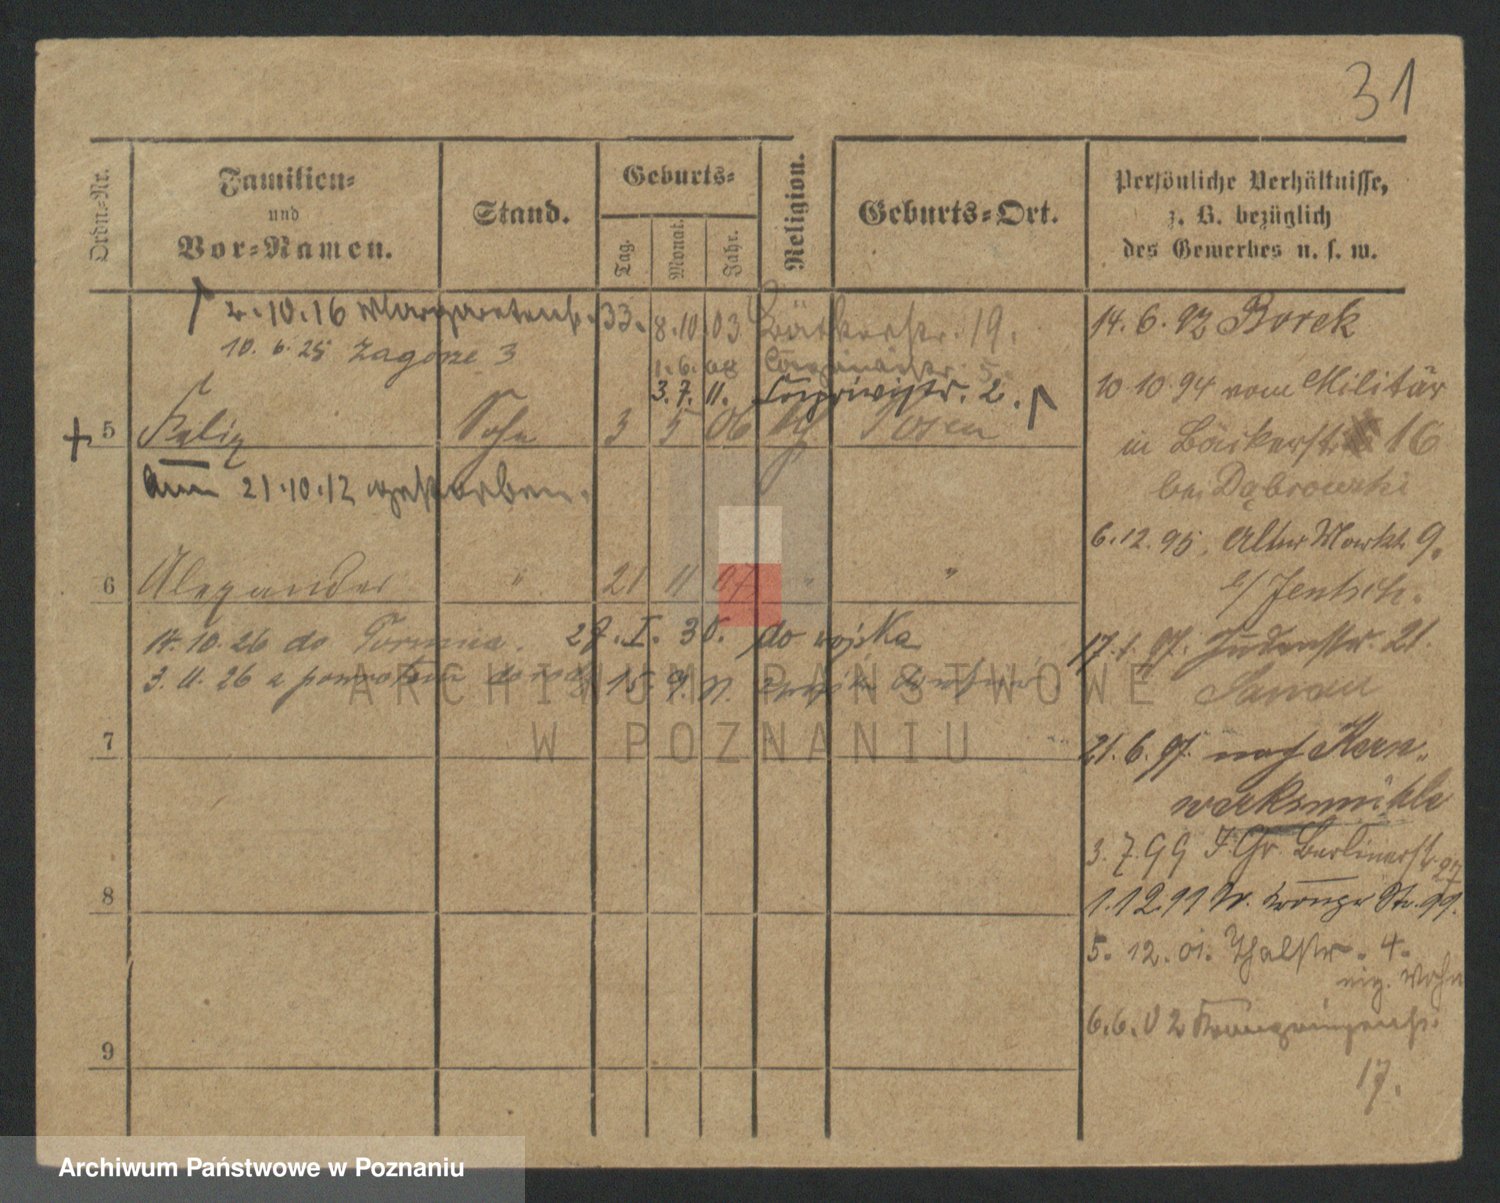 31
Ordn.-Nr.
Familien-
und
Vor-Namen.
Stand.
Geburts-
Tag.
Monat.
Jahr.
Religion.
Geburts-Ort.
Persönliche Verhältnisse,
z. B. bezüglich
des Gewerbes u. s. w.
2.10.16 Margaretenstr. 33.
10. 6. 25 Zagórze 3
8.10.03 Bäckerstr. 19.
1.6.08
3.7.11. Caprivistr. 2.
5 Felix Sohn 3 5 06 Posen
Am 21.10.12 gestorben.
6 Alexander " 21 11 07 " "
14.10.26 do Torunia. 27.I.30. do wojska
3.11.26 z powrotem 15.9.
7
8
9
14.6.92 Borek
10.10.94 vom Militär
in Bäckerstr. 16
bei Dąbrowski
6.12.95. Alter Markt 9.
b/ Jentsch.
17.1.97. Judenstr. 21.
21.6.97. nach Kern-
werksmühle
3.7.99 Berlinerstr.
1.12.99 Str.
5.12.01. Thalstr. 4.
eig. Wohn
6.6.02
17.
ARCHIWUM PAŃSTWOWE
W POZNANIU
Archiwum Państwowe w Poznaniu